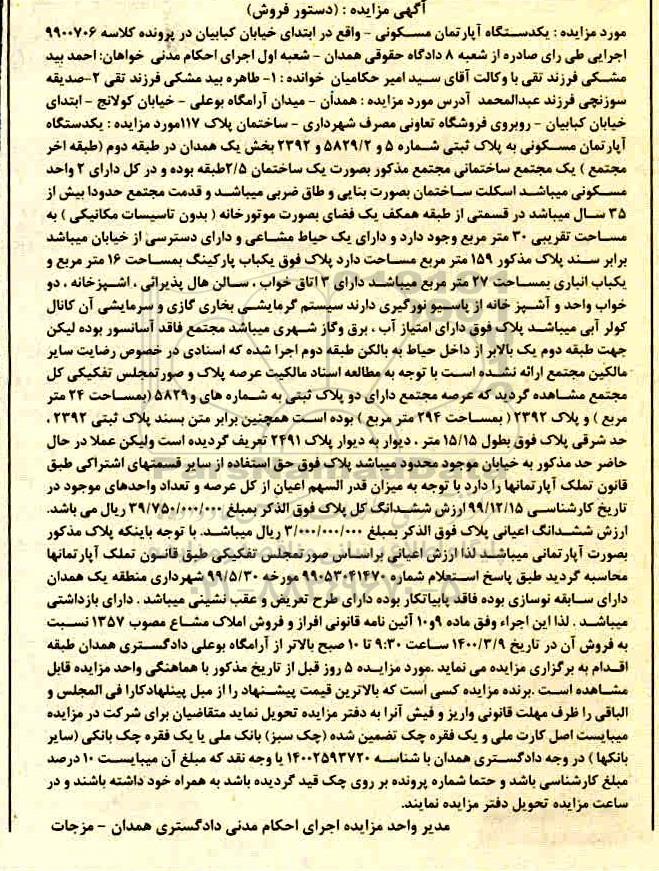 آگهی مزایده : (دستور فروش)
مورد مزایده : یکدستگاه آپارتمان مسکونی - واقع در ابتدای خیابان کبابیان در پرونده کلاسه ۹۹۰۰۷۰۶
اجرایی طی رای صادره از شعبه ۸ دادگاه حقوقی همدان - شعبه اول اجرای احکام مدنی خواهان: احمد بید
مشکی فرزند تقی با وکالت آقای سید امیر حکامیان خوانده : ۱- طاهره بید مشکی فرزند تقی ۲-صدیقه
سوزنچی فرزند عبدالمحمد آدرس مورد مزایده : همدان - میدان آرامگاه بوعلی - خیابان کولانج - ابتدای
خیابان کبابیان - روبروی فروشگاه تعاونی مصرف شهرداری - ساختمان پلاک ۱۱۷مورد مزایده : یکدستگاه
آپارتمان مسکونی به پلاک ثبتی شماره ۵ و ۵۸۲۹/۲ و ۲۳۹۲ بخش یک همدان در طبقه دوم (طبقه اخر
مجتمع ) یک مجتمع ساختمانی مجتمع مذکور بصورت یک ساختمان ۲/۵طبقه بوده و در کل دارای ۲ واحد
مسکونی میباشد اسکلت ساختمان بصورت بنایی و طاق ضربی میباشد و قدمت مجتمع حدودا بیش از
۳۵ سال میباشد در قسمتی از طبقه همکف یک فضای بصورت موتورخانه ( بدون تاسیسات مکانیکی ) به
مساحت تقریبی ۳۰ متر مربع وجود دارد و دارای یک حیاط مشاعی و دارای دسترسی از خیابان میباشد
برابر سند پلاک مذکور ۱۵۹ متر مربع مساحت دارد پلاک فوق یکباب پارکینگ بمساحت ۱۶ متر مربع و
یکباب انباری بمساحت ۲۷ متر مربع میباشد دارای ۳ اتاق خواب ، سالن هال پذیرائی ، اشپزخانه ، دو
خواب واحد و آشپز خانه از پاسیو نورگیری دارند سیستم گرمایشی بخاری گازی و سرمایشی آن کانال
کولر آبی میباشد پلاک فوق دارای امتیاز آب ، برق وگاز شهری میباشد مجتمع فاقد آسانسور بوده لیکن
جهت طبقه دوم یک بالابر از داخل حیاط به بالکن طبقه دوم اجرا شده که اسنادی در خصوص رضایت سایر
مالکین مجتمع ارائه نشده است با توجه به مطالعه اسناد مالکیت عرصه پلاک و صورتمجلس تفکیکی کل
مجتمع مشاهده گردید که عرصه مجتمع دارای دو پلاک ثبتی به شماره های و۵۸۲۹ (بمساحت ۲۴ متر
مربع ) و پلاک ۲۳۹۲ ( بمساحت ۲۹۴ متر مربع ) بوده است همچنین برابر متن بسند پلاک ثبتی ۲۳۹۲ ،
حد شرقی پلاک فوق بطول ۱۵/۱۵ متر ، دیوار به دیوار پلاک ۲۴۹۱ تعریف گردیده است ولیکن عملا در حال
حاضر حد مذکور به خیابان موجود محدود میباشد پلاک فوق حق استفاده از سایر قسمتهای اشتراکی طبق
قانون تملک آپارتمانها را دارد با توجه به میزان قدر السهم اعیان از کل عرصه و تعداد واحدهای موجود در
تاریخ کارشناسی ۹۹/۱۲/۱۵ ارزش ششدانگ کل پلاک فوق الذکر بمبلغ ۳۹/۷۵۰/۰۰۰/۰۰۰ ریال می باشد.
ارزش ششدانگ اعیانی پلاک فوق الذکر بمبلغ ۳/۰۰۰/۰۰۰/۰۰۰ ریال میباشد. با توجه باینکه پلاک مذکور
بصورت آپارتمانی میباشد لذا ارزش اعیانی براساس صورتمجلس تفکیکی طبق قانون تملک آپارتمانها
محاسبه گردید طبق پاسخ استعلام شماره ۹۹۰۵۳۰۴۱۴۷۰ مورخه ۹۹/۵/۳۰ شهرداری منطقه یک همدان
دارای سابقه نوسازی بوده فاقد پابیاتکار بوده دارای طرح تعریض و عقب نشینی میباشد . دارای بازداشتی
میباشد . لذا این اجراء وفق ماده ۹و۱۰ آئین نامه قانونی افراز و فروش املاک مشاع مصوب ۱۳۵۷ نسبت
به فروش آن در تاریخ ۱۴۰۰/۳/۹ ساعت ۹:۳۰ تا ۱۰ صبح بالاتر از آرامگاه بوعلی دادگستری همدان طبقه
اقدام به برگزاری مزایده می نماید .مورد مزایده ۵ روز قبل از تاریخ مذکور با هماهنگی واحد مزایده قابل
مشاهده است .برنده مزایده کسی است که بالاترین قیمت پیشنهاد را از مبل پینلهادکارا فی المجلس و
الباقی را ظرف مهلت قانونی واریز و فیش آنرا به دفتر مزایده تحویل نماید متقاضیان برای شرکت در مزایده
میبایست اصل کارت ملی و یک فقره چک تضمین شده (چک سبز) بانک ملی یا یک فقره چک بانکی (سایر
بانکها ) در وجه دادگستری همدان با شناسه ۱۴۰۰۲۵۹۳۷۲۰ یا وجه نقد که مبلغ آن میبایست ۱۰ درصد
مبلغ کارشناسی باشد و حتما شماره پرونده بر روی چک قید گردیده باشد به همراه خود داشته باشند و در
ساعت مزایده تحویل دفتر مزایده نمایند.
مدیر واحد مزایده اجرای احکام مدنی دادگستری همدان - مزجات